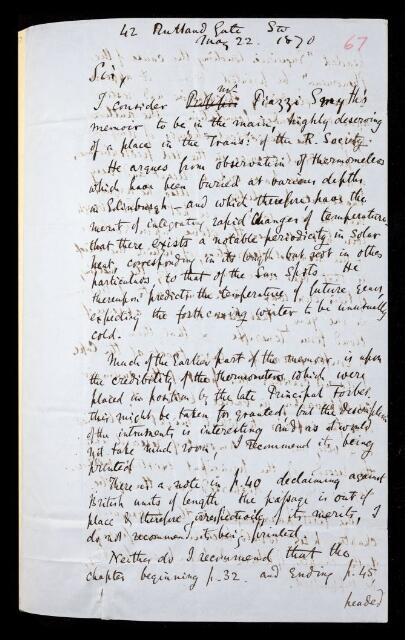 42 Rutland Gate SW
May 22. 1870
67
Sir,
I consider Mr Piazzi Smyth's
memoir to be in the main, highly deserving
of a place in the Trans: of the R. Society
He argues from observation of thermometers
which have been buried at various depths
in Edinburgh – and which therefore, have the
merit of integrating rapid changes of temperature –
that there exists a notable periodicity in Solar
heat, corresponding in its length but not in other
particulars, to that of the Sun Spots. He
thereupon predicts the temperature of future years,
expecting the forthcoming winter to be unusually
cold.
Much of the Earlier part of the memoir, is upon
the credibility of the thermometers which were
placed in position by the late Principal Forbes.
this might be taken for granted, but the description
of the intruments is interesting and as it would
not take much room, I recommend its being
printed
There is a note in p. 40 declaiming against
British units of length. the passage is out of
place & therefore, irrespectively of its merits, I
do not recommend its being printed
Neither do I recommend that the
chapter beginning p. 32. and Ending p. 45
headed